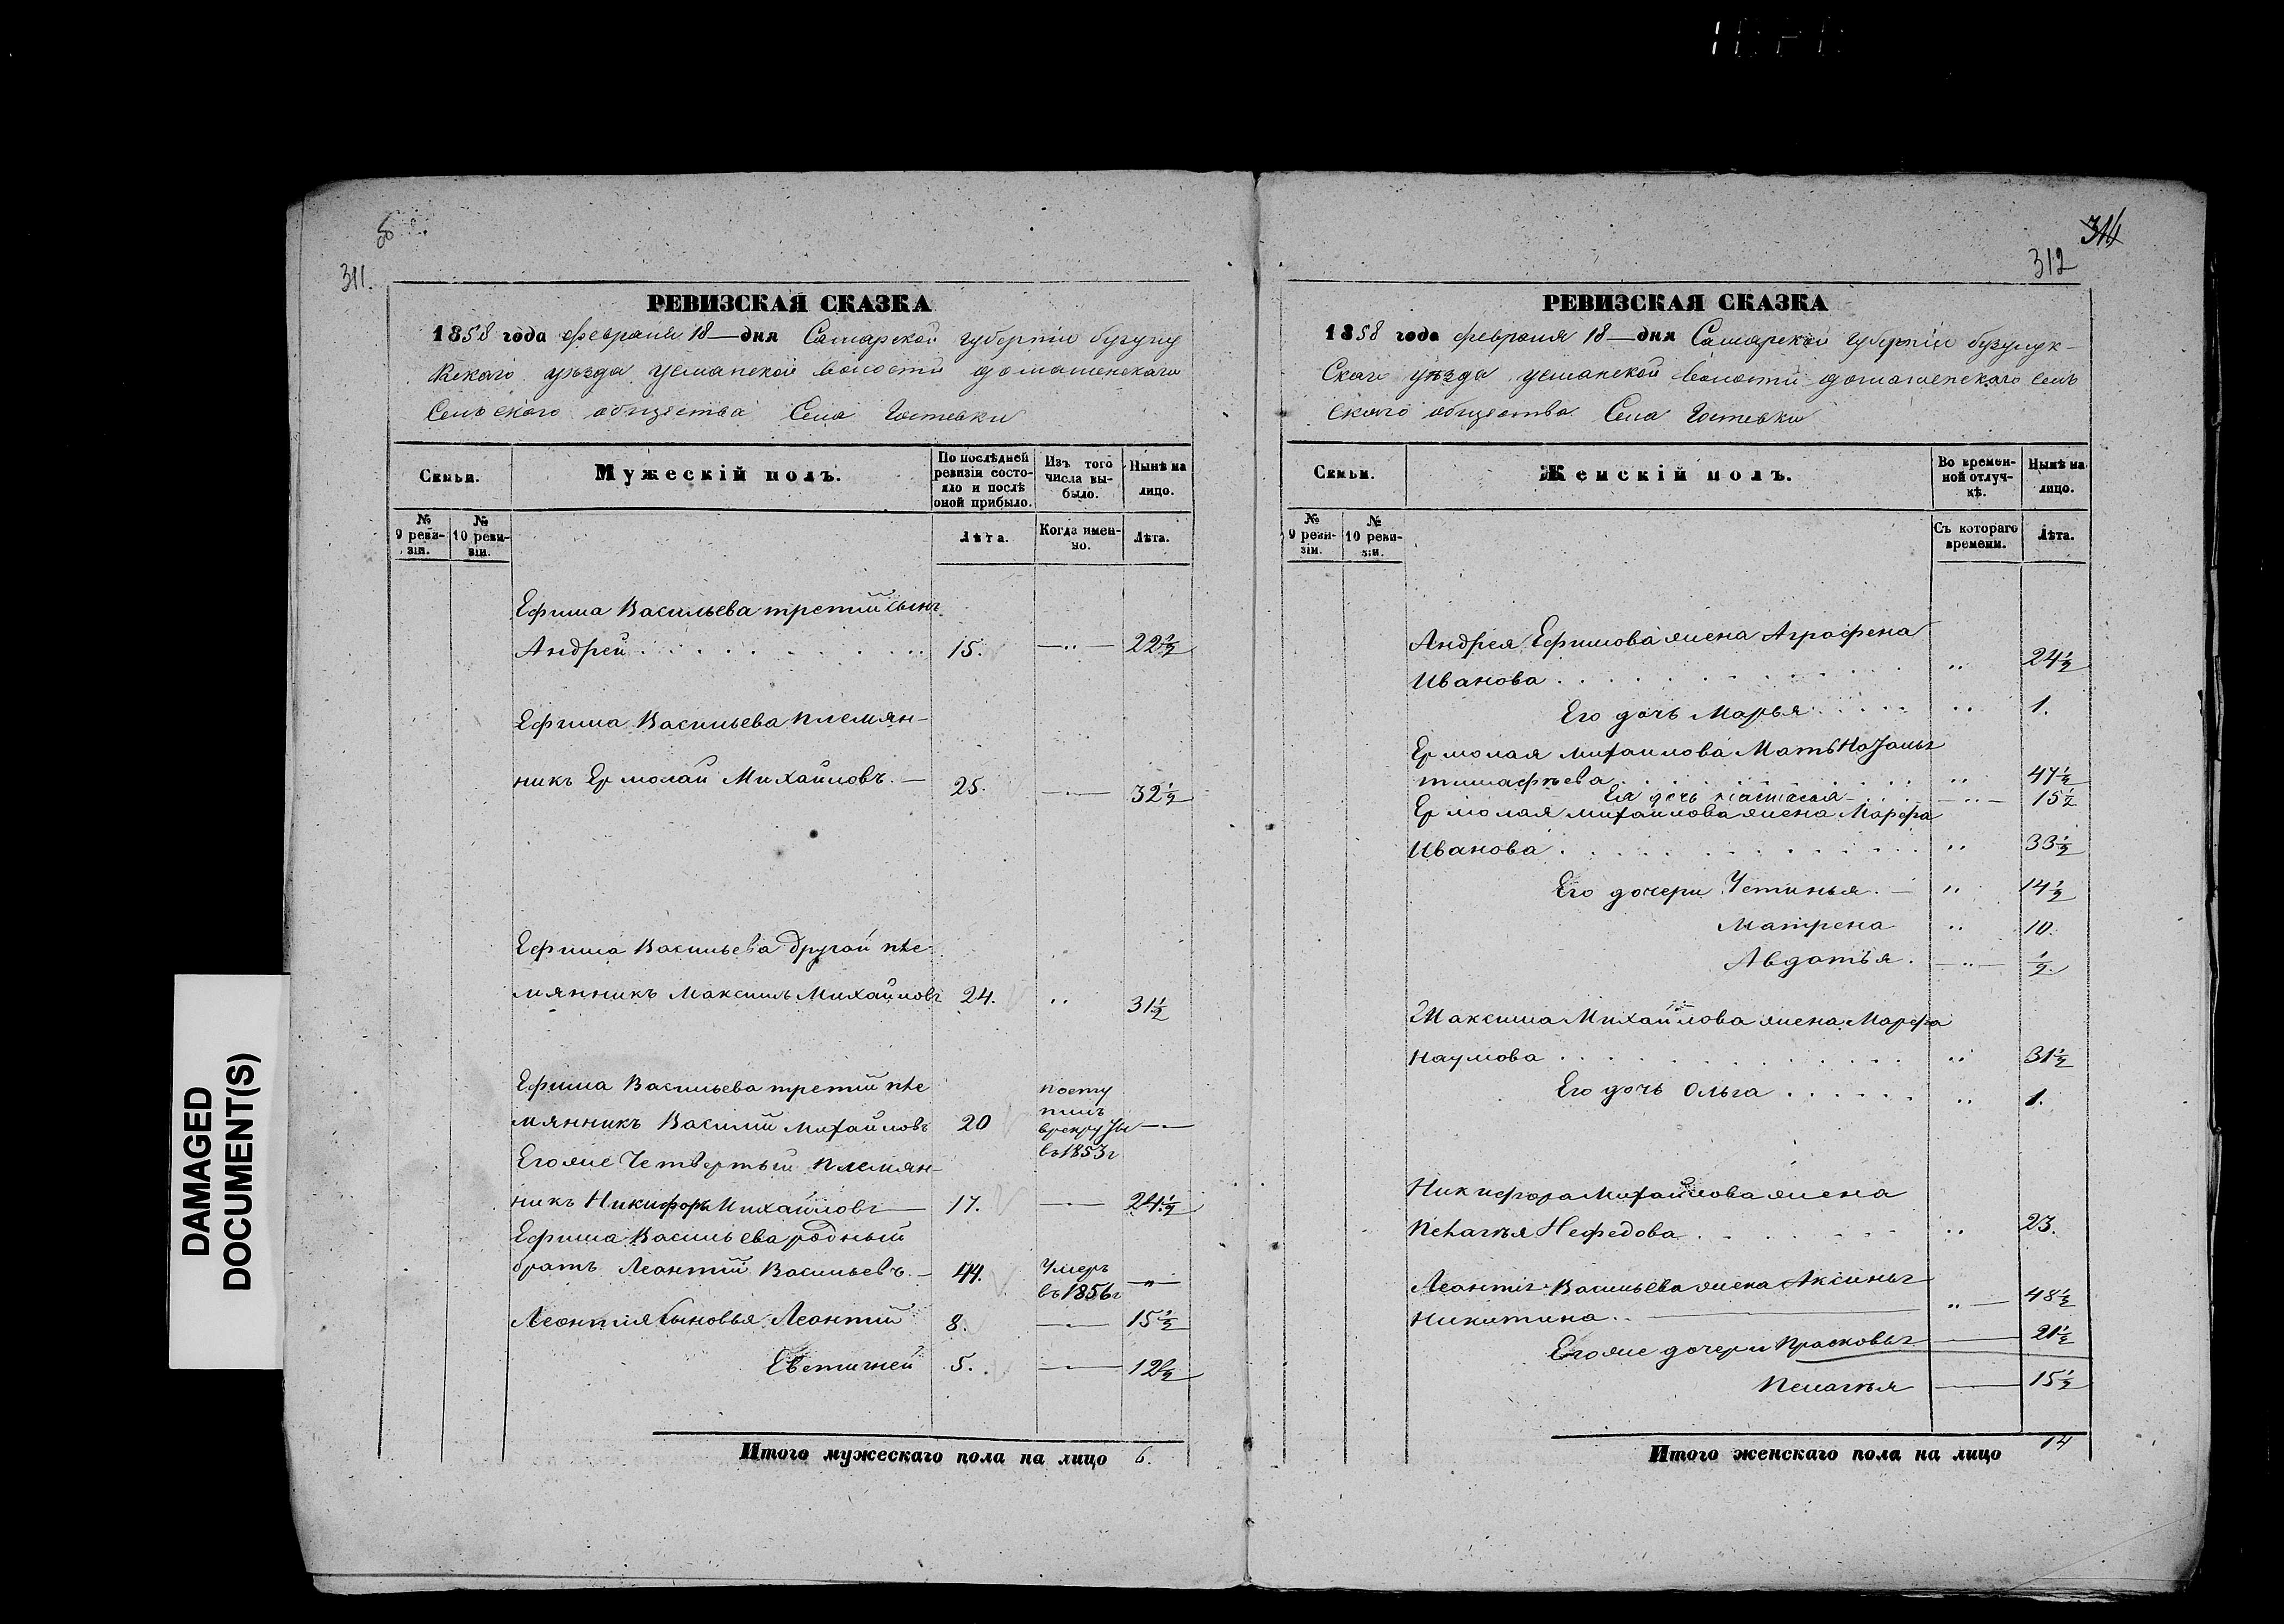 DAMAGED
DOCUMENT(S)
311.
РЕВИЗСКАЯ СКАЗКА
1858 года февраля 18 — дня Самарской губернiи бузулу
кскаго уѣзда усманской волости домашенскаго
Сельскаго общества Села
Семьи.
Мужескiй полъ.
По послѣдней ревизiи состояло и послѣ оной прибыло.
Изъ того числа выбыло.
Нынѣ на лицо.
№ 9 ревизiи.
№ 10 ревизiи.
Лѣта.
Когда именно.
Лѣта.
Ефима Васильева третiй сынъ
Андрей 15. 22½
Ефима Васильева племян-
никъ Ермолай Михайловъ. — 25. 32½
Ефима Васильева другой пле-
мянникъ Максимъ Михайловъ 24. 31½
Ефима Васильева третiй пле
мянникъ Василiй Михайловъ 20
посту
пилъ
врекруты
въ 1853г
Егоже Четвертый племян-
никъ Никифоръ Михайловъ — 17. 24½
Ефима Васильева родный
братъ Леонтiй Васильевъ. — 44.
Умеръ
въ 1856г
Леонтiя сыновья Леонтiй 8. 15½
5. 12½
Итого мужескаго пола на лицо 6.
314
312
РЕВИЗСКАЯ СКАЗКА
1858 года февраля 18 — дня Самарской губернiи бузулук-
Скаго уѣзда усманской волости домашенскаго сель
скаго общества Села
Семьи.
Женскiй полъ.
Во временной отлучкѣ.
Нынѣ на лицо.
№ 9 ревизiи.
№ 10 ревизiи.
Съ котораго времени.
Лѣта.
Андрея Ефимова жена Аграфена
Иванова 24½
Его дочь Марья 1.
Ермолая Михайлова Мать
тимофѣева 47½
Ея дочь 15½
Ермолая михайлова жена Марфа
Иванова 33½
Его дочери Устинья. — 14½
Матрена 10.
Авдотья. ½.
Максима Михайлова жена Марфа
Наумова 31½
Его дочь Ольга 1.
Никифора Михайлова жена
Пелагѣя Нефедова 23.
Васильева жена Аксинья
Никитина 48½
Егоже дочери Прасковья 21½
Пелагѣя 15½
Итого женскаго пола на лицо 14